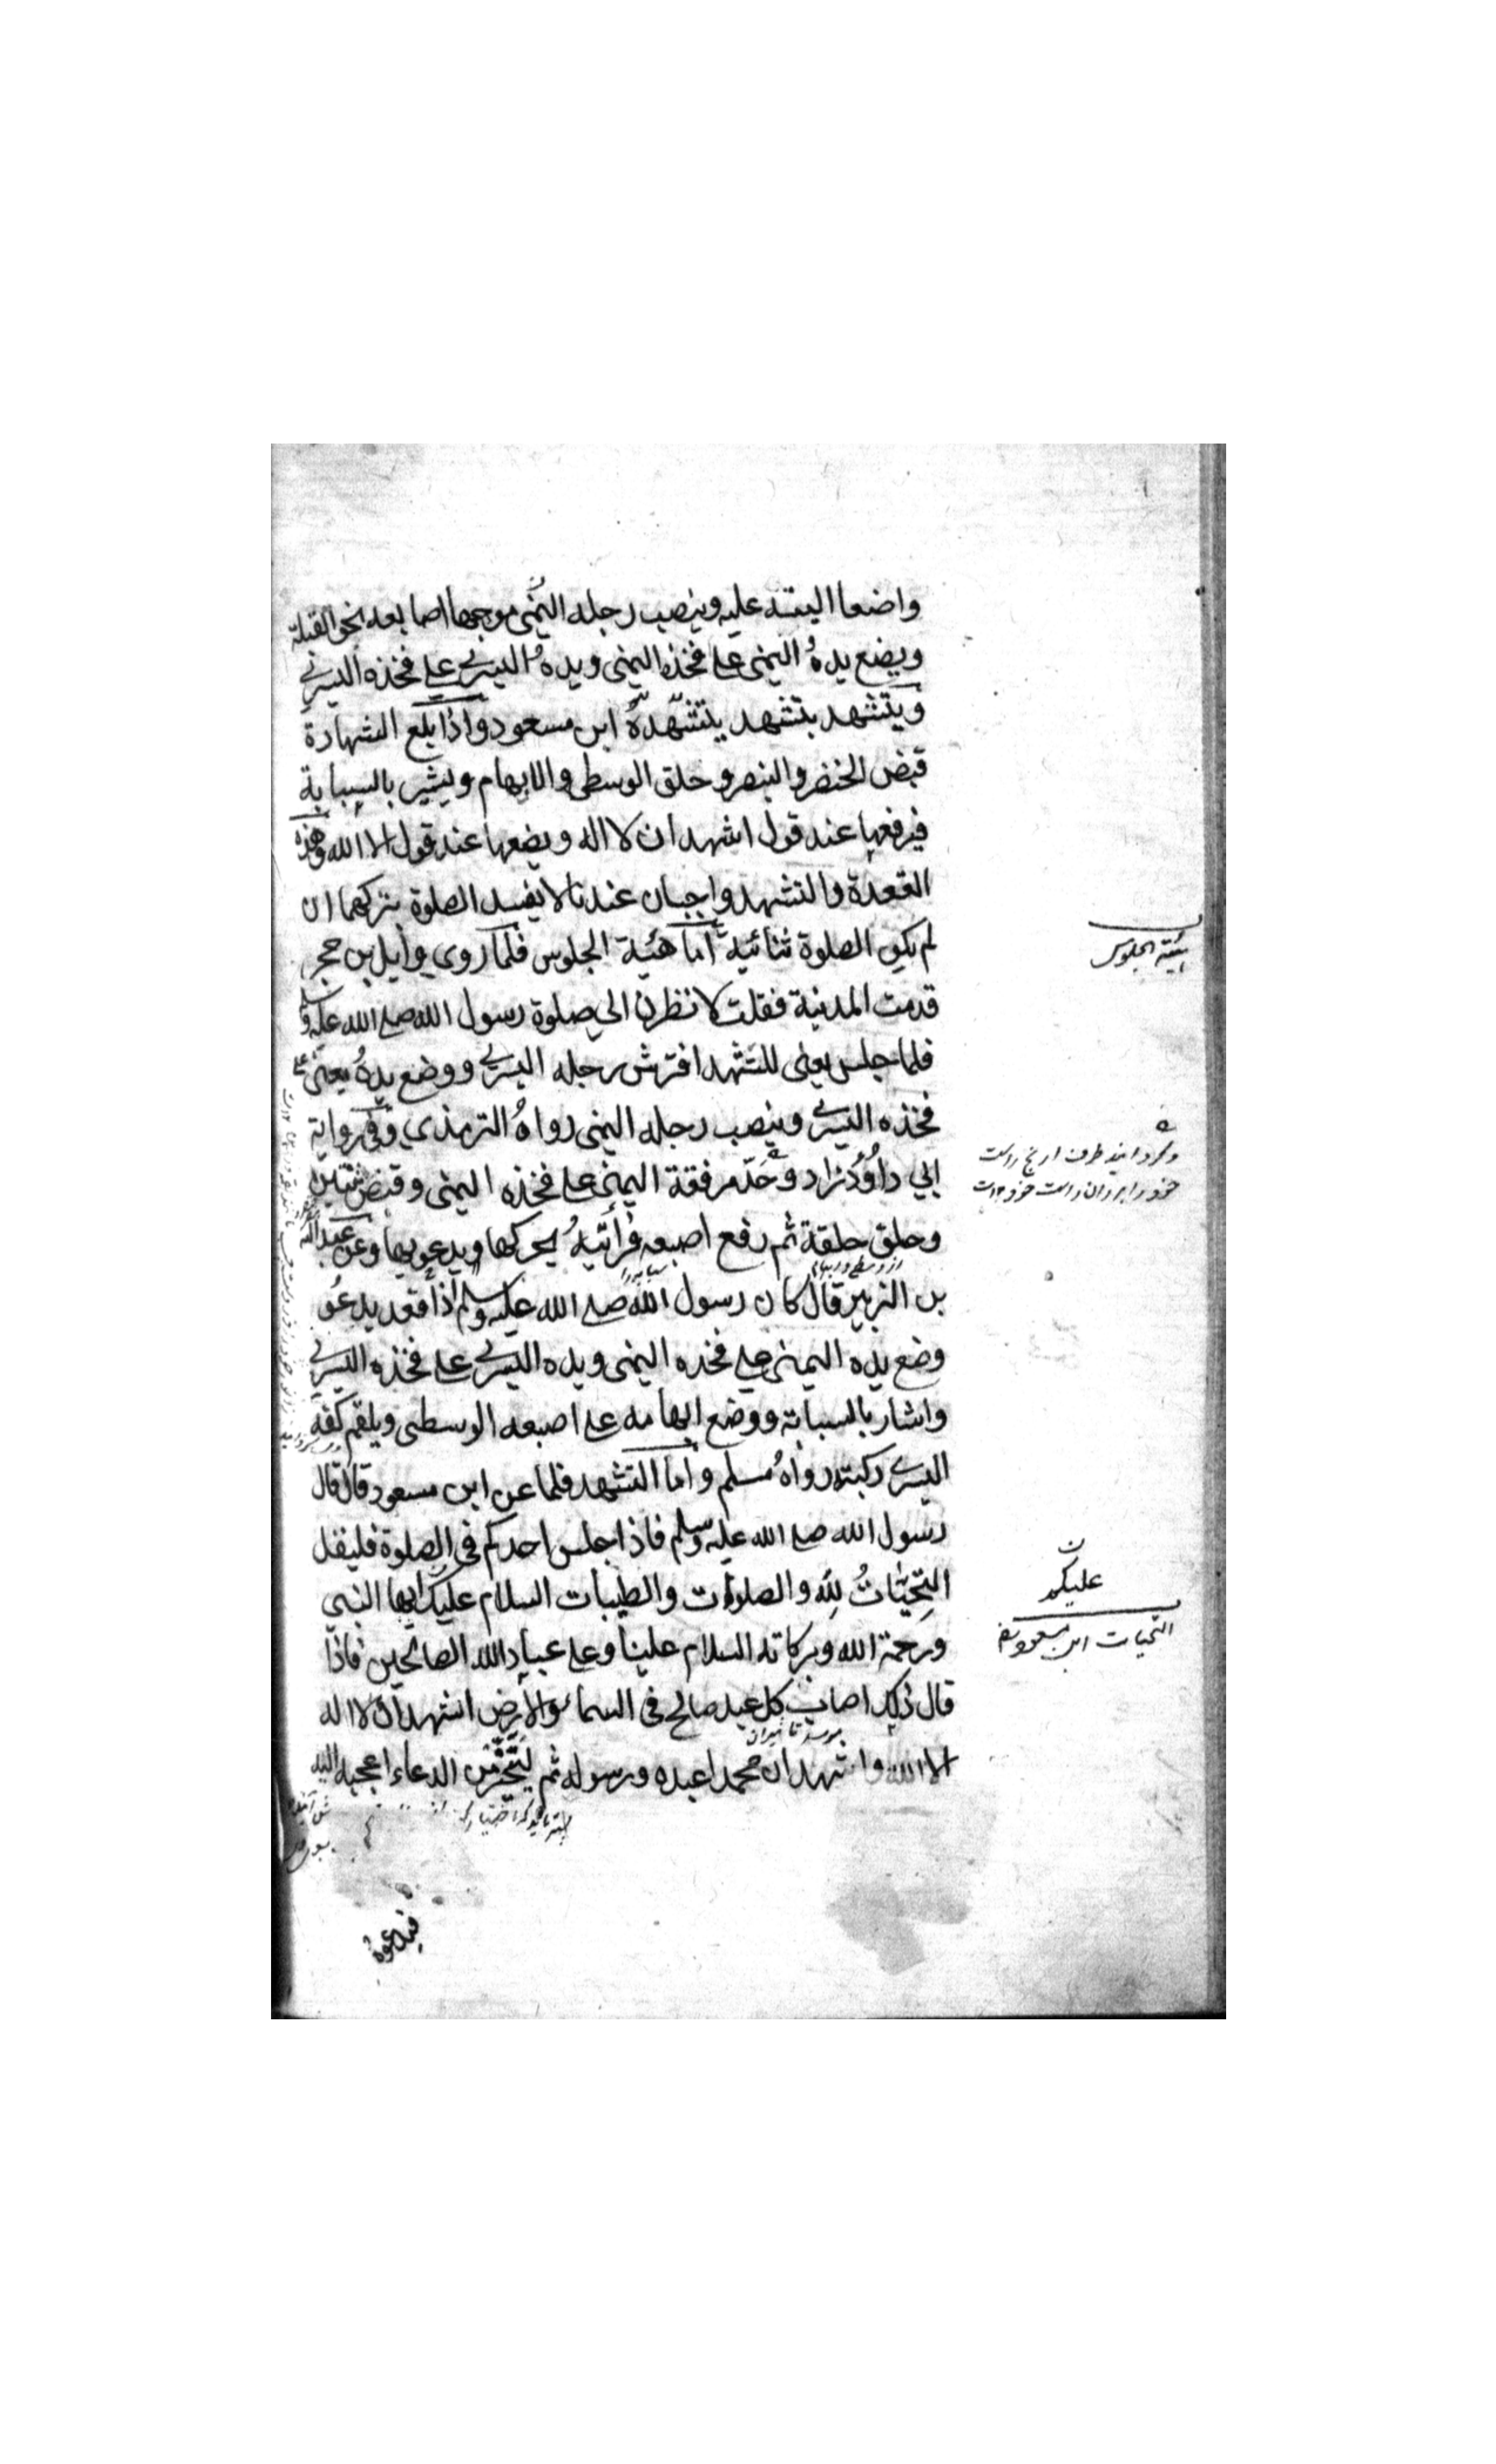 واضعا اليته عليه وينصب رجله اليمنى موجها اصابعه نحو القبلة
ويضع يده اليمنى على فخذه اليمنى ويده اليسرى على فخذه اليسرى
ويتشهد بتشهد يتشهده ابن مسعود واذا بلغ الشهادة
قبض الخنصر والبنصر و حلق الوسطى والابهام ويشير بالسبابة
فيرفعها عند قول اشهد ان لا اله ويضعها عند قول الا الله وهذه
القعدة والتشهد واجبان عندنا لا يفسد الصلوة بتركهما ان
لم يكن الصلوة ثنائية اما هئية الجلوس فلما روى وايل بن حجر
هيئة الجلوس
قدمت المدنية فقلت لانظرن الى صلوة رسول الله صلى الله عليه وسلم
فلما جلس يعنى للتشهد افترش رجله اليسرى ووضع يده يعنى على
فخذه اليسرى وينصب رجله اليمنى رواه الترمذي وفى رواية
ابي داود زاد وحد مرفقة اليمنى على فخذه اليمنى وقبض ثنتين
وحلق حلقة ثم رفع اصبعه فرأيته يحركها ويدعو بها وعن عبد الله
بن الزبير قال كان رسول الله صلى الله عليه وسلم اذا قعد يدعو
وضع يده اليمنى على فخذه اليمنى ويده اليسرى على فخذه اليسرى
واشار بالسبابة ووضع ابهامه على اصبعه الوسطى ويلقم كفه
اليسرى ركبته رواه مسلم واما التشهد فلما عن ابن مسعود قال قال
رسول الله صلى الله عليه وسلم فاذا جلس احدكم فى الصلوة فليقل
التحيات لله والصلوات والطيبات السلام عليك ايها النبي
التحيات ابن مسعود
ورحمة الله وبركاته السلام علينا وعلى عباد الله الصالحين فاذا
قال ذلك اصاب كل عبد صالح فى السماء والارض اشهد ان لا اله
الا الله واشهد ان محمدا عبده ورسوله ثم ليتخير من الدعاء اعجبه اليه
فيدعوه